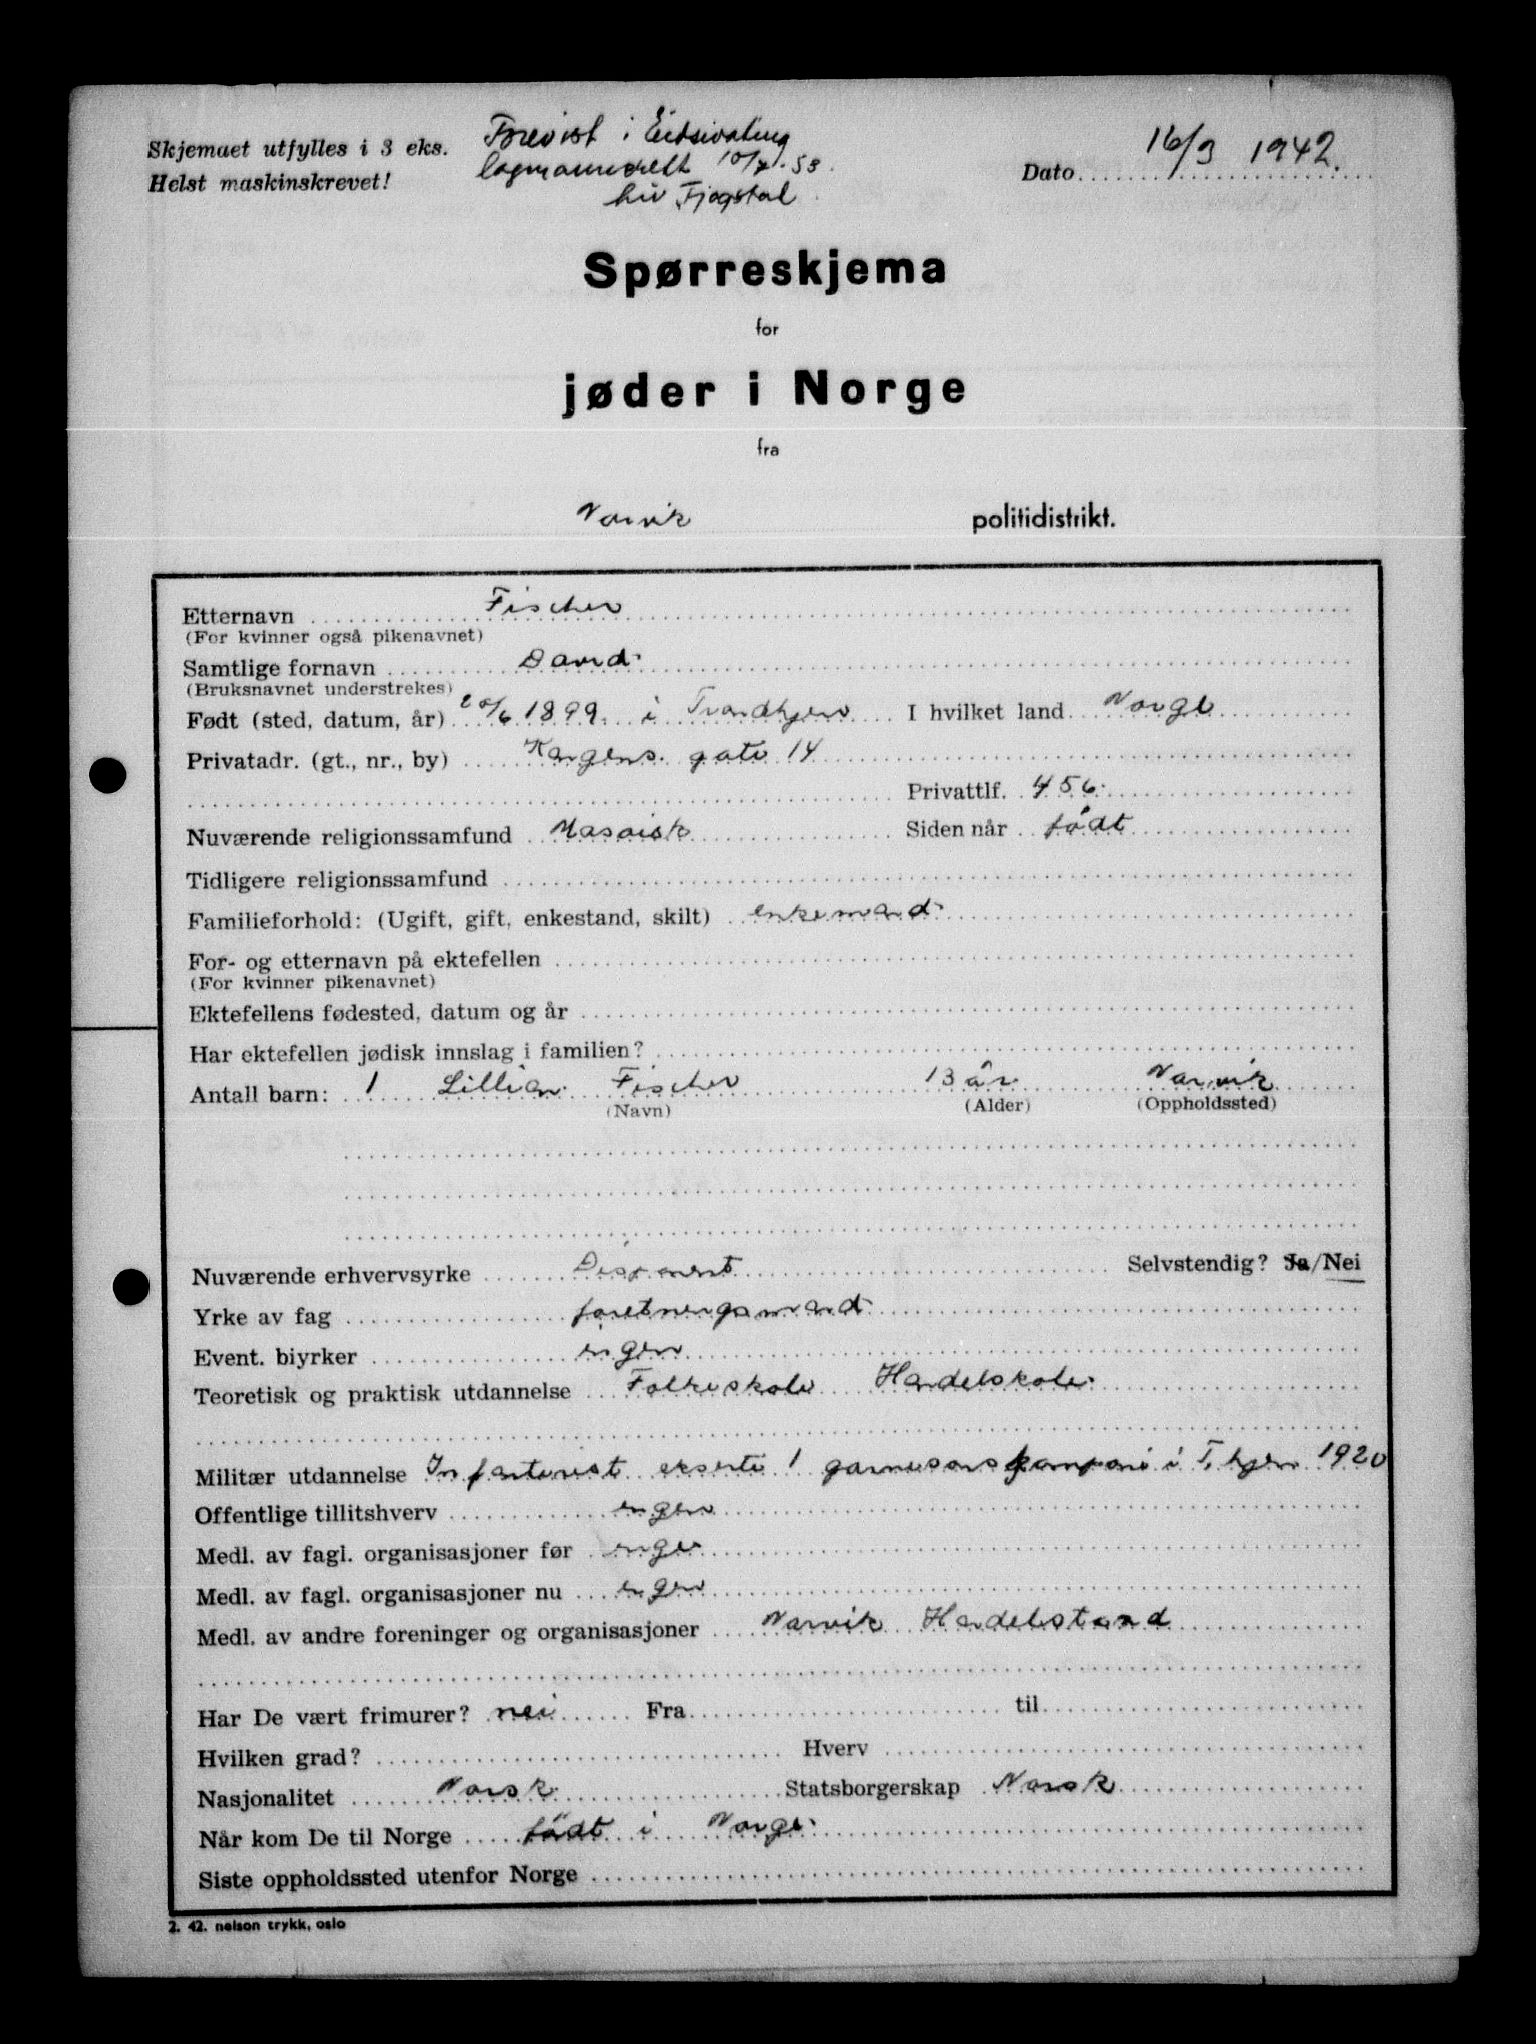 Skjemaet utfylles i 3 eks.
Helst maskinskrevet!
Frevist i Eidsivating
lagmannsrett 10/7-53.
Liv Fjogstad
Dato 16/3 1942.
Spørreskjema
for
jøder i Norge
fra
Narvik politidistrikt.
Etternavn Fischer
(For kvinner også pikenavnet)
Samtlige fornavn David
(Bruksnavnet understrekes)
Født (sted, datum, år) 20/6 1899. i Trondhjem I hvilket land Norge
Privatadr. (gt., nr., by) Kongens gate 14
Privattlf. 456
Nuværende religionssamfund Mosaisk Siden når født
Tidligere religionssamfund
Familieforhold: (Ugift, gift, enkestand, skilt) enkemand
For- og etternavn på ektefellen
(For kvinner pikenavnet)
Ektefellens fødested, datum og år
Har ektefellen jødisk innslag i familien?
Antall barn: 1 Lillian Fischer 13 år Narvik
(Navn) (Alder) (Oppholdssted)
Nuværende erhvervsyrke Disponent Selvstendig? Ja/Nei
Yrke av fag foretningsmand
Event. biyrker ingen
Teoretisk og praktisk utdannelse Folkeskole Handelskole
Militær utdannelse Infanterist 1 garnisonskompani i T.hjem 1920
Offentlige tillitshverv ingen
Medl. av fagl. organisasjoner før ingen
Medl. av fagl. organisasjoner nu ingen
Medl. av andre foreninger og organisasjoner Narvik Handelstand
Har De vært frimurer? nei Fra til
Hvilken grad? Hverv
Nasjonalitet Norsk Statsborgerskap Norsk
Når kom De til Norge født i Norge
Siste oppholdssted utenfor Norge
2. 42. nelson trykk, oslo